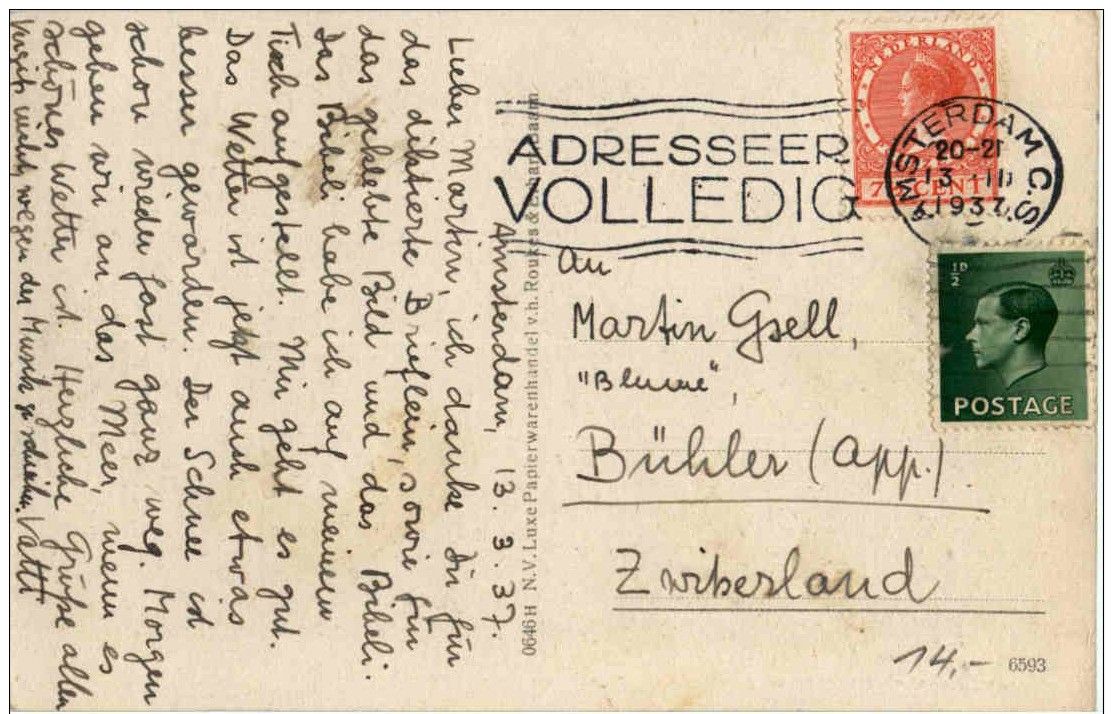 Amsterdam, 13. 3. 37.
Lieber Martin, ich danke Dir für
das diktierte Brieflein, sowie für
das geklebte Bild und das Bibeli.
Das Bibeli habe ich auf meinem
Tisch aufgestellt. Mir geht es gut.
Das Wetter ist jetzt auch etwas
besser geworden. Der Schnee ist
schon wieder fast ganz weg. Morgen
gehen wir an das Meer, wenn es
schönes Wetter ist. Herzliche Grüsse allen
nicht wegen der Musik zu Vatti
0646H N.V. Luxe Papierwarenhandel v.h. Roukes &
ADRESSEER
VOLLEDIG
NEDERLAND
7½ CENT
AMSTERDAM C.S
20-21
13 III
1937
½D
POSTAGE
An
Martin Gsell,
"Blume",
Bühler (App.)
Zwitserland
14,-
6593